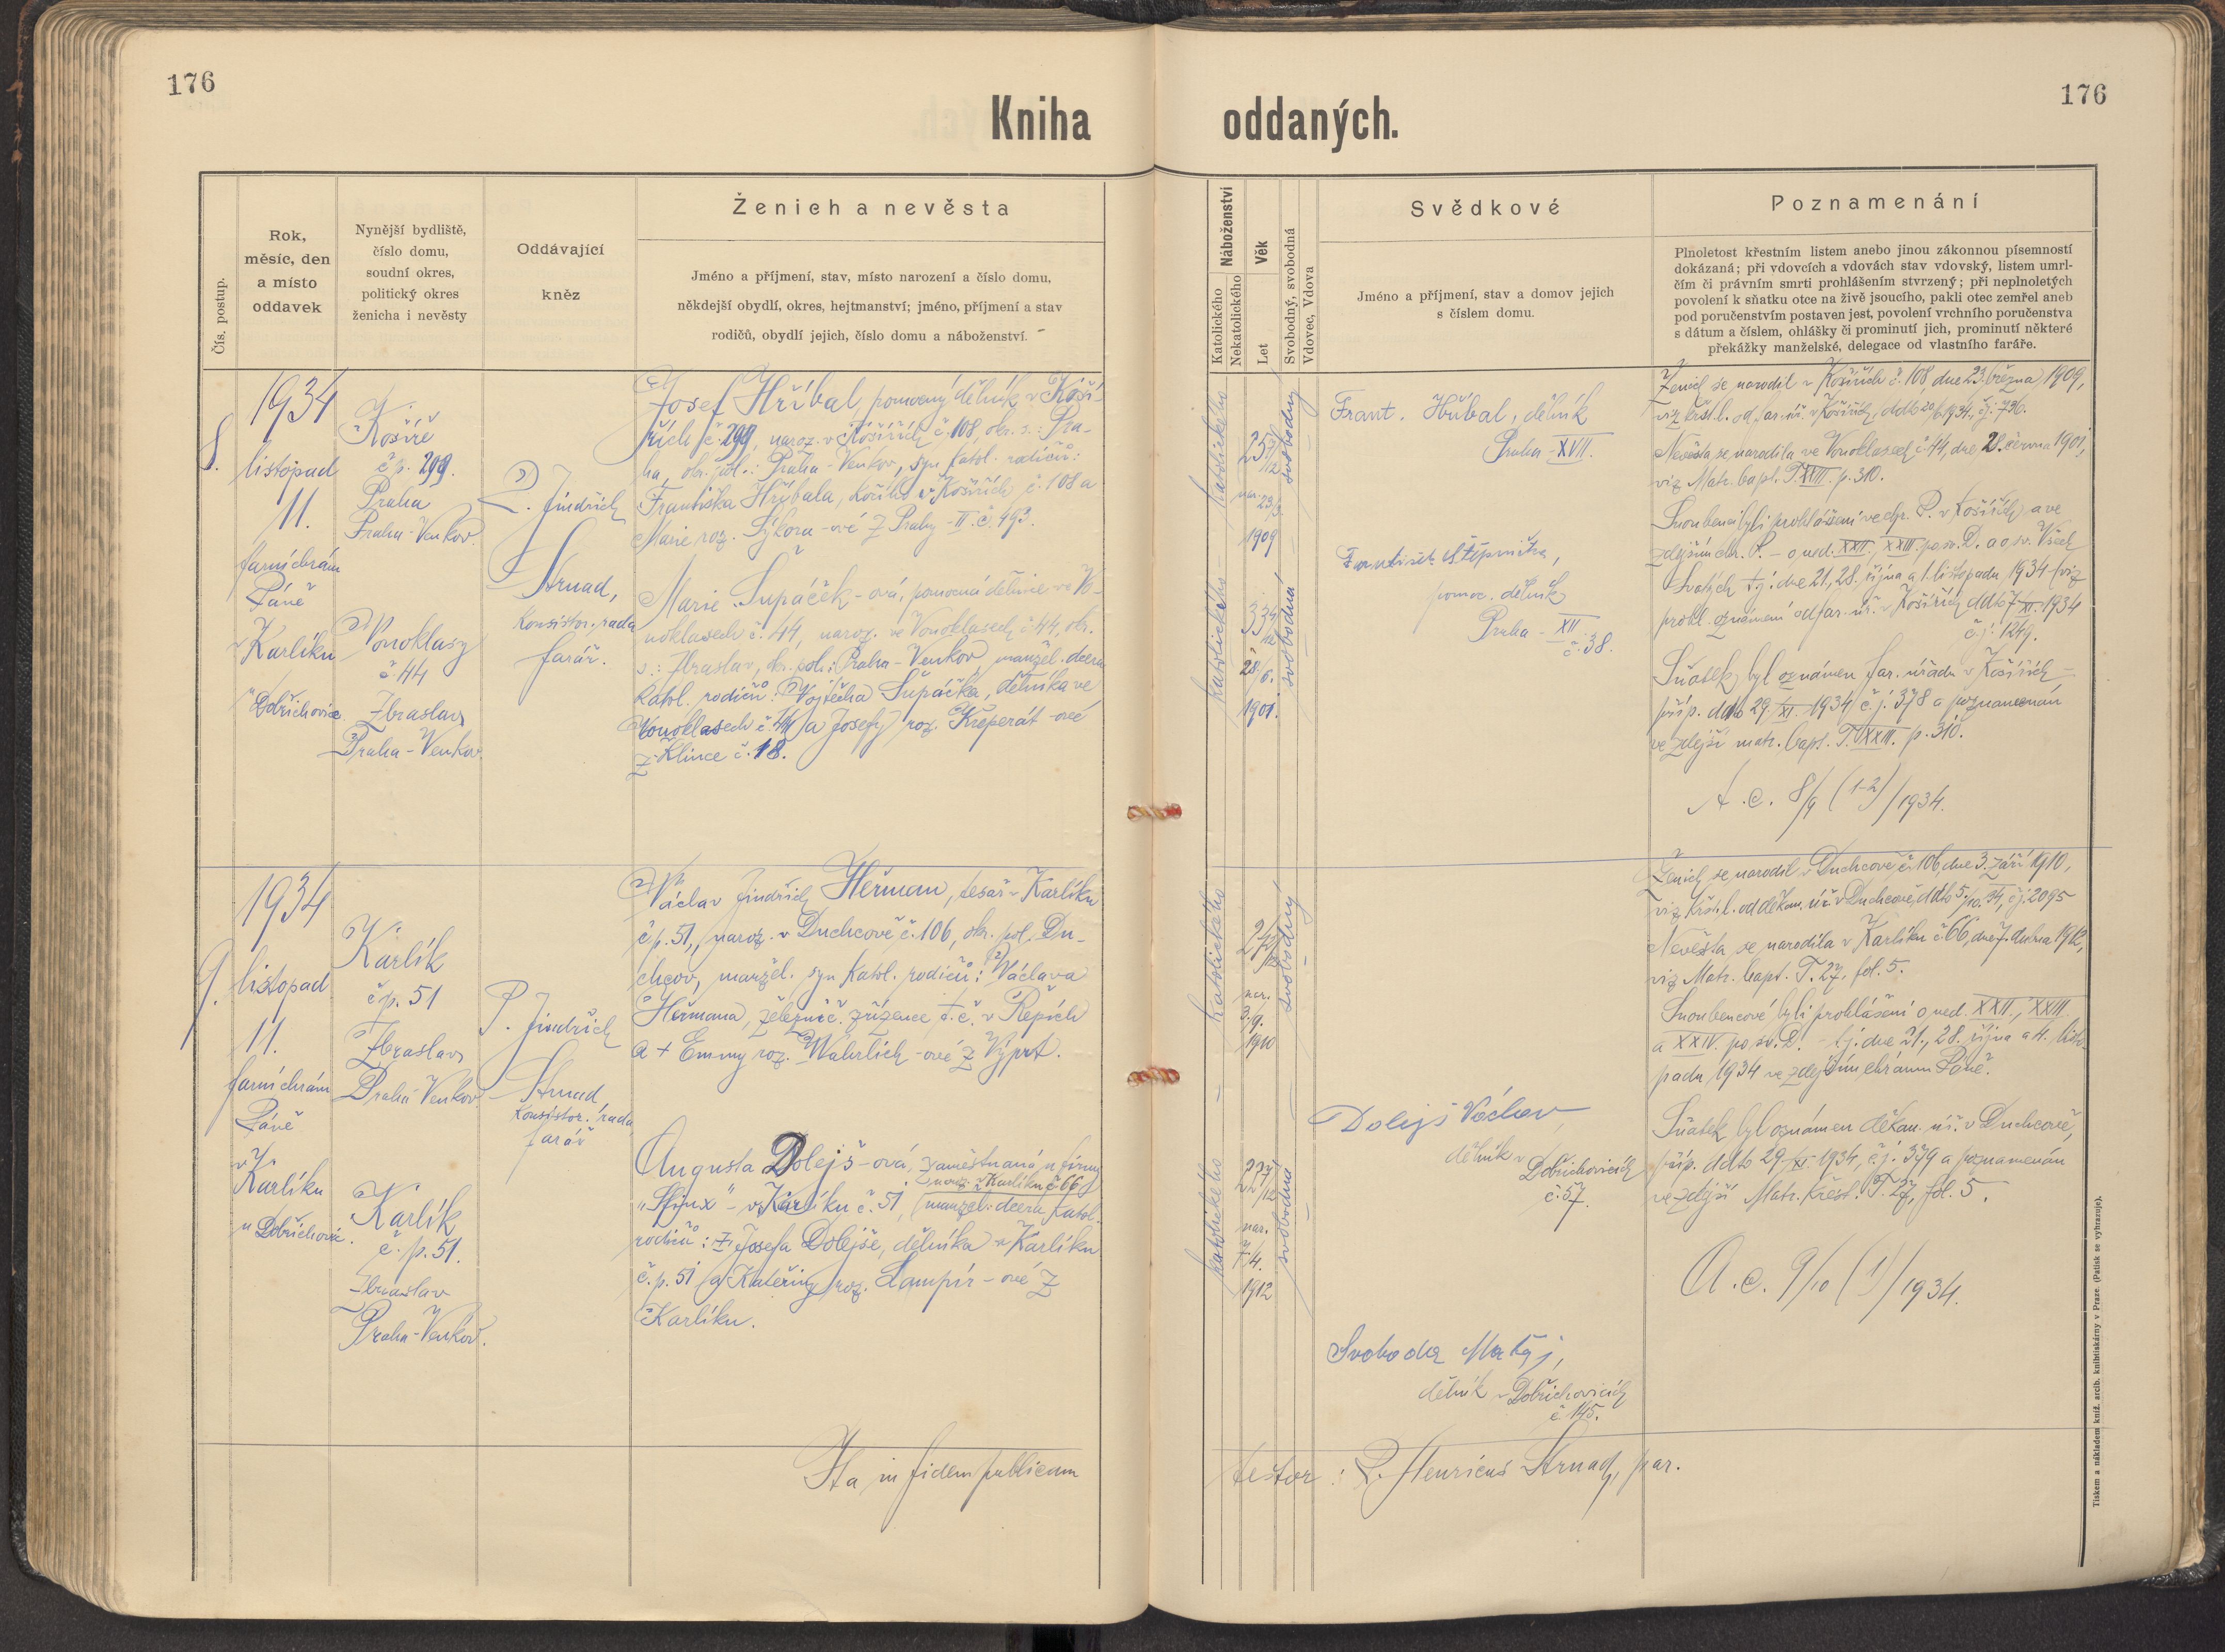 176
176
Kniha oddaných.
Čís. postup.
Rok,
měsíc, den
a místo
oddavek
Nynější bydliště,
číslo domu,
soudní okres,
politický okres
ženicha i nevěsty
Oddávající
kněz
Ženich a nevěsta
Jméno a příjmení, stav, místo narození a číslo domu,
někdejší obydlí, okres, hejtmanství; jméno, příjmení a stav
rodičů, obydlí jejich, číslo domu a náboženství.
Náboženství
Katolického
Nekatolického
Věk
Let
Svobodný, svobodná
Vdovec, Vdova
Svědkové
Jméno a příjmení, stav a domov jejich
s číslem domu.
Poznamenání
Plnoletost křestním listem anebo jinou zákonnou písemností
dokázaná; při vdovcích a vdovách stav vdovský, listem umrl-
čím či právním smrti prohlášením stvrzený; při neplnoletých
povolení k sňatku otce na živě jsoucího, pakli otec zemřel aneb
pod poručenstvím postaven jest, povolení vrchního poručenstva
s dátum a číslem, ohlášky či prominutí jich, prominutí některé
překážky manželské, delegace od vlastního faráře.
8.
1934
listopad
11.
farní chrám
Páně
v Karlíku
Dobřichovic
Košíře
č p. 299.
Praha
Praha-Venkov.
Vonoklasy
č 44
Zbraslav
Praha-Venkov.
P. Jindřich
Strnad,
Konsistor. rada
farář.
Josef Hříbal, pomocný dělník v Koší-
řích č. 299, naroz. v Košířích č. 108, okr. s.: Pra-
ha, okr. pol.: Praha-Venkov, syn katol. rodičů:
Františka Hříbala, v Košířích č. 108 a
Marie roz. Sýkora-ové z Prahy-II. č. 493.
Marie Šupáček-ová, pomocná dělnice ve Vo-
noklasech č. 44, naroz. ve Vonoklasech č 44, okr.
s.: Zbraslav, okr. pol.: Praha-Venkov, manžel. dcera
katol. rodičů: Vojtěcha Šupáčka, dělníka ve
Vonoklasech č. 44 a Josefy roz. Křeperát-ové
z Klínce č. 18.
katolického
25
nar. 23/3
1909
svobodný
katolického
33
28/6.
1901.
svobodná
Frant. Hříbal, dělník
Praha-XVII.
František Štěpnička,
pomoc. dělník
Praha-XII
č. 38.
Ženich se narodil v Košířích č. 108 dne 23. března 1909,
viz křst. l. od far. úř. v Košířích, ddto 20/6. 1934, č.j. 736.
Nevěsta se narodila ve Vonoklasech č 44, dne 28. června 1901,
viz Matr. bapt. T. XXIII. p. 310.
Snoubenci byli prohlášeni ve chr. P. v Košířích a ve
zdejším chr. P. – o ned. XXII., XXIII. po sv. D. a o sv. Všech
Svatých t.j. dne 21., 28. října a 1. listopadu 1934 (viz
prohl. oznámení od far. úř. v Košířích ddto 7/XI. 1934
č.j. 1249.
Sňatek byl oznámen far. úřadu v Košířích –
příp. ddto 29/XI. 1934 č.j. 378 a poznamenán
ve zdejší matr. bapt. T. XXIII. p. 310.
A.c. 8/9 (1-2)/1934.
9.
1934
listopad
11.
farní chrám
Páně
v Karlíku
u Dobřichovic.
Karlík
č p. 51
Zbraslav
Praha Venkov.
Karlík
č. p. 51.
Zbraslav
Praha-Venkov.
P. Jindřich
Strnad
Konsistor. rada,
farář
Václav Jindřich Heřman, tesař v Karlíku
č p. 51, naroz. v Duchcově č. 106, okr. pol. Du-
chcov, manžel. syn katol. rodičů: Václava
Heřmana, železnič. zřízence t.č. v Řepích
a + Emmy roz. Wahrlich-ové z Výprt.
Augusta Dolejš-ová, zaměstnaná u firmy
naroz. v Karlíku č. 66
„Sfinx“ – v Karlíku č. 51, manžel. dcera katol.
rodičů: + Josefa Dolejše, dělníka v Karlíku
č.p. 51 a Kateřiny roz. Lampír-ové z
Karlíku.
katolického
nar.
3./9.
1910
svobodný
katolického
22
nar.
7/4.
1912
svobodná
Dolejš Václav,
dělník v
Dobřichovicích
č. 57.
Svoboda Matěj,
dělník v Dobřichovicích
č 145.
Ženich se narodil v Duchcově č. 106, dne 3. září 1910,
viz křst. l. od děkan. úř. v Duchcově, ddto 5./10. 34, č.j. 2095
Nevěsta se narodila v Karlíku č 66, dne 7. dubna 1912,
viz Matr. bapt. T. 27, fol. 5.
Snoubencové byli prohlášeni o ned. XXII., XXIII.
a XXIV. po sv. D. – t.j. dne 21., 28. října a 4. listo-
padu 1934 ve zdejším chrámu Páně.
Sňatek byl oznámen děkan. úř. v Duchcově,
příp. ddto 29/XI. 1934, č.j. 379 a poznamenán
ve zdejší Matr. křest. T. 27, fol. 5.
A.c. 9/10 (1)/1934.
Ita in fidem publicam
testor: P. Henricus Strnad, par.
Tiskem a nákladem kníž. arcib. knihtiskárny v Praze. (Patisk se vyhrazuje).